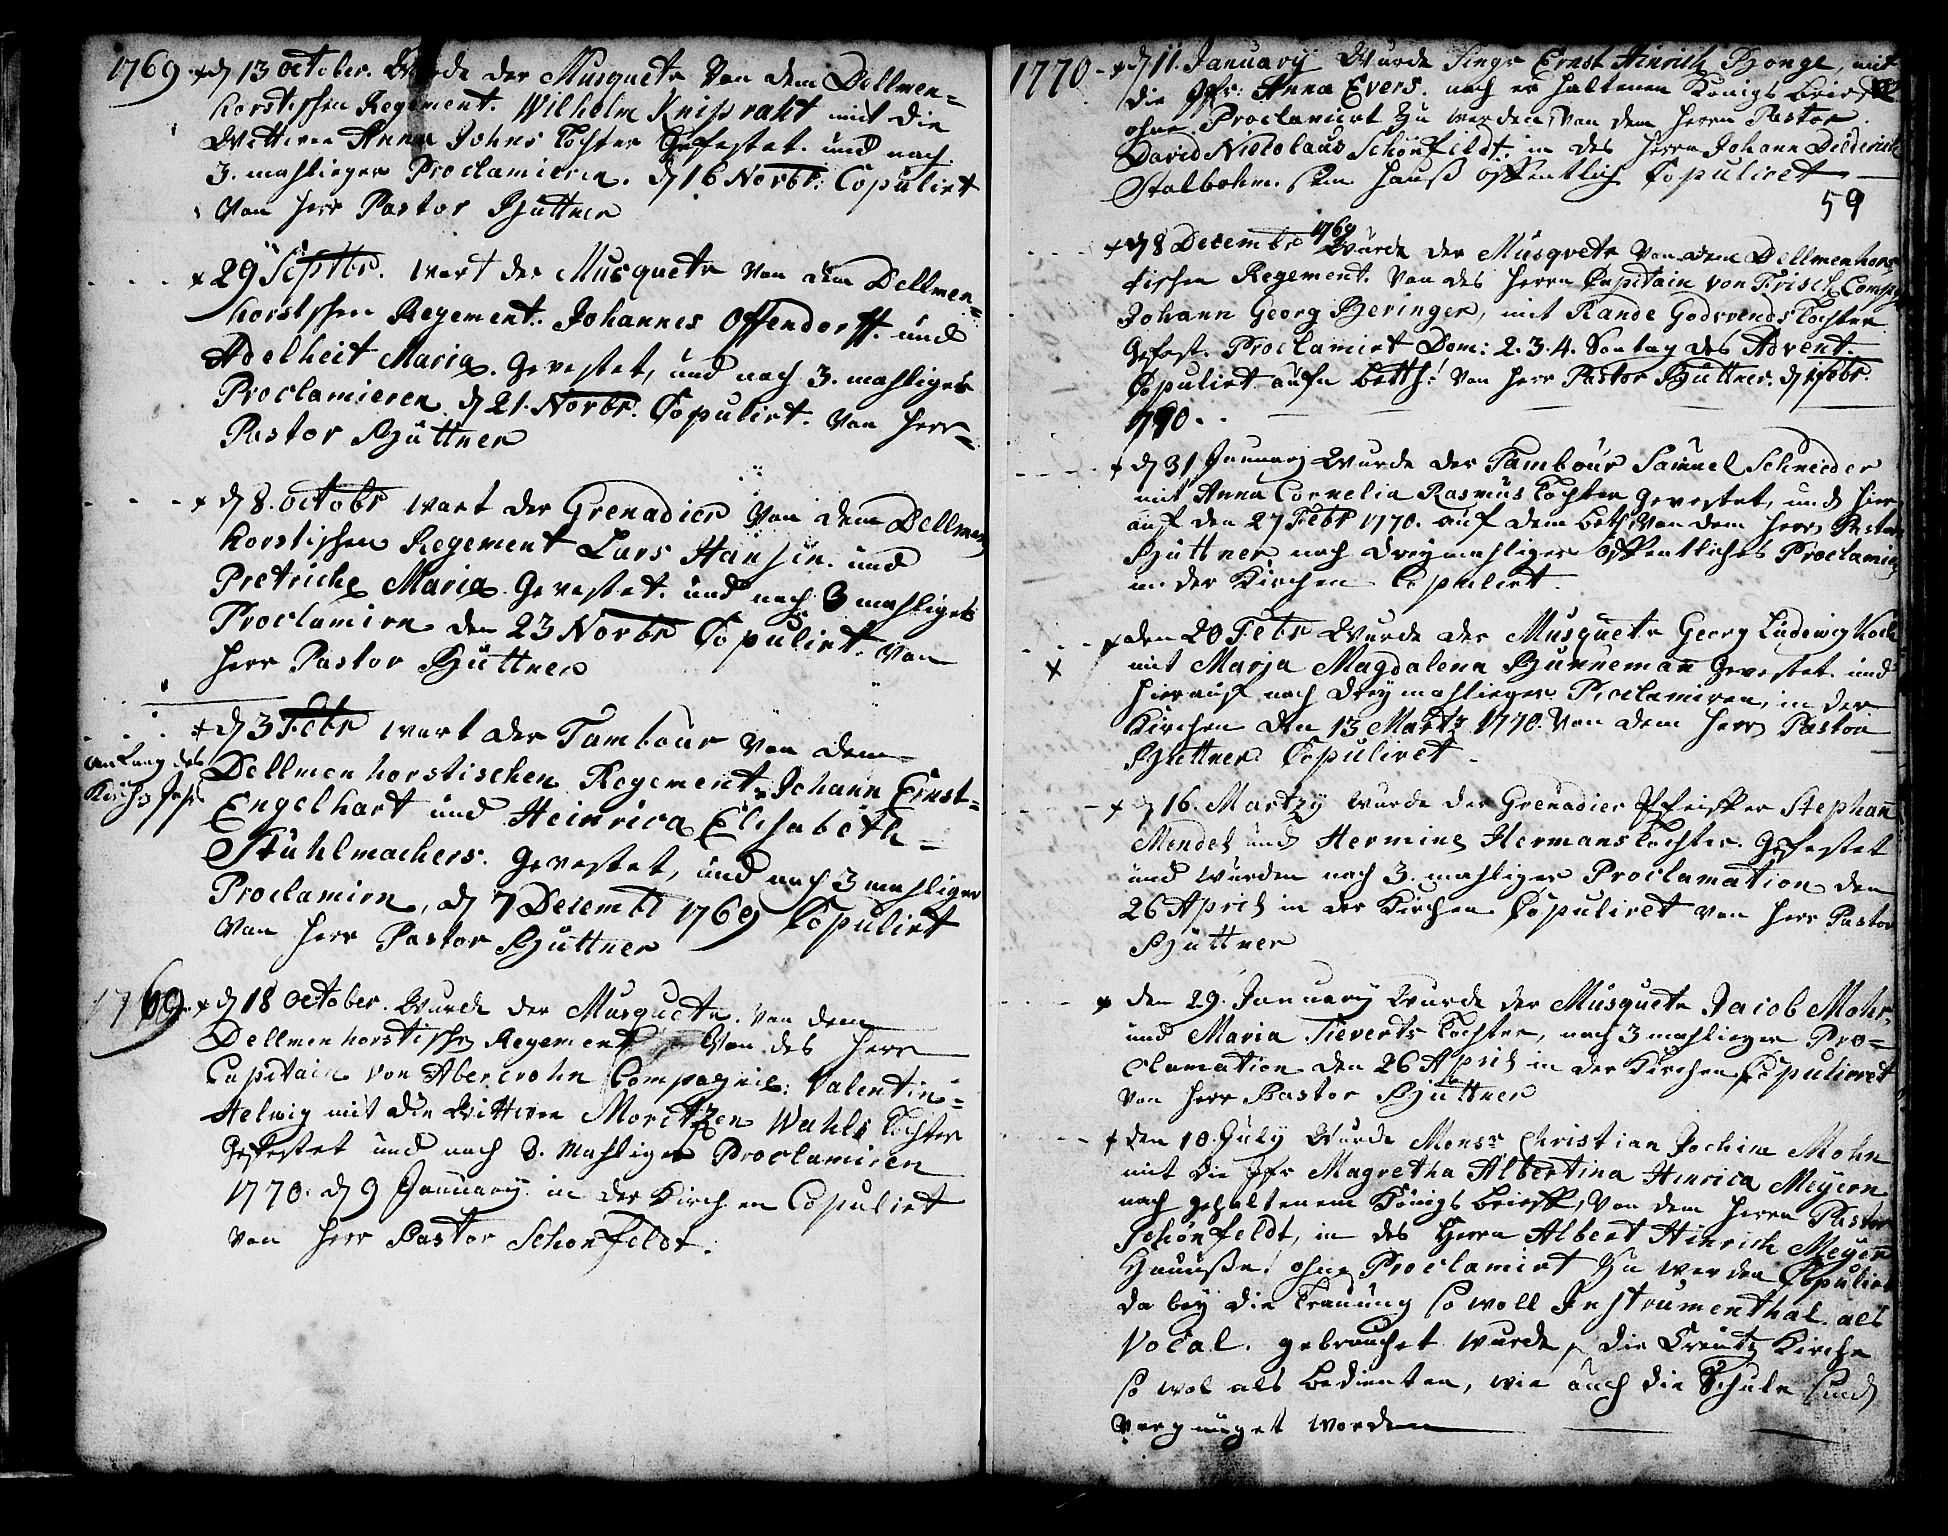 1769. d 13 october. Wurde der Musquetr Von dem Dellmen=
horstischen Regement. Wilhelm Kniprakt mit die
Wittwe Anna Johns Tochter Gefestet. und nach
3. mahlieger Proclamieren. d 16 Novbr: Copuliert
Von Herr Pastor Büttner
29 Septbr. wart der Musquetr Von dem Dellmen=
horstschen Regement. Johannes Offendorff. und
Adelheit Maria. gevestet, und nach 3. mahliger
Proclamieren d 21. Novbr. Copuliert. Von Herr=
Pastor Büttner
d 8. octobr wart der Grenadier Von dem Dellmen
horstischen Regement Lars Hansen. und
Pretriche Maria. Gevestet. und nach 3 mahliger
Proclamirn den 23 Novbr Copuliert. Von
Herr Pastor Büttner
d 3 Febr wart der Tambour Von dem
Anfang des
Kirchs Jahr
Dellmenhorstischen Regement Johann Ernst=
Engelhart und Heinrica Elisabeth=
Stühlmachers. gevestet, und nach 3 mahliger
Proclamirn, d 7 Decembr 1769 Copuliert
Von Herr Pastor Büttner
1769. d 18 october. Wurde der Musquetr. Von dem
Dellmenhorstischen Regement Von des Herr
Capitain von Abercrohn Compagnie: Valentin=
Helwig mit die Wittwe Moritzen Wahls Tochter
Gefestet und nach 3. mahliger Proclamiren
1770. d 9 January in der Kirchen Copuliert
Von Herr Pastor Schönfeldt.
1770 d 11. January Wurde Singr Ernst Hinrich Bonge, mit
die Jfr: Anna Evers. nach er haltenen Königs brief
ohne Proclamirt zu werden, Von dem Herrn Pastor.
David Nicolaus Schönfeldt. in des Herrn Johann Diederich
Stalbohm. sein Hauß öffentlich Copuliret
59
d 8 Decembr 1769 Wurde der Musqvetr Von dem Dellmenhors
tischen Regement. Von des Herrn Capitain von Frisch Comp:
Johann Georg Beringer, mit Rande Godsvends Tochter
Gefest. Proclamirt Dom: 2. 3. 4. Sontag des Advent.
Copuliert aufn beth: Von Herr Pastor Büttner. d 1 Febr.
1770.
d 31 January Wurde der Tambour Samuel Schneeder
mit Anna Cornelia Rasmus Tochter gevestet, und hier
auf den 27 Febr 1770. auf dem beth Von dem Herrn Pastor
Büttner nach dreymahliger öffentliches Proclamirn
in der Kirchen Copuliert.
den 20 Febr Wurde der Musquetr Georg Ludewig Koch
mit Marja Magdalena Bünneman gevestet. und
hierauf nach dreymahlieger Proclamiren, in der
Kirchen den 13 Martz 1770. Von dem Herr Pastor
Büttner Copuliret.
d 16. Martzy wurde der Grenadier Pfeiffer Stephan
Mendel und Hermine Hermans Tochter. Gefestet
und wurden nach 3. mahliger Proclamation den
26 April in der Kirchen Copuliret Von Herr Pastor
Büttner
den 29. January Wurde der Musquetr Jacob Mohr.
und Maria Sieverts Tochter, nach 3 mahlieger Pro=
clamation den 26 April in der Kirchen Copulieret
Von Herr Pastor Büttner
den 10. July Wurde Monsr Christian Jochim Mohn
mit die Jfr Magretha Albertina Hinrica Meyern
nach gehaltenem Königs brieff, Von dem Herrn Pastor
Schönfeldt, in des Herrn Albert Hinrich Meyern
Hauuße. ohne Proclamirt zu werden Copuliert
da bey die Trauung so woll Instrumenthal. als
Vocal. gebrauchet wurde, die Creutz Kirche
so wol als bedienten, wie auch die Schule sind
vergnüget worden